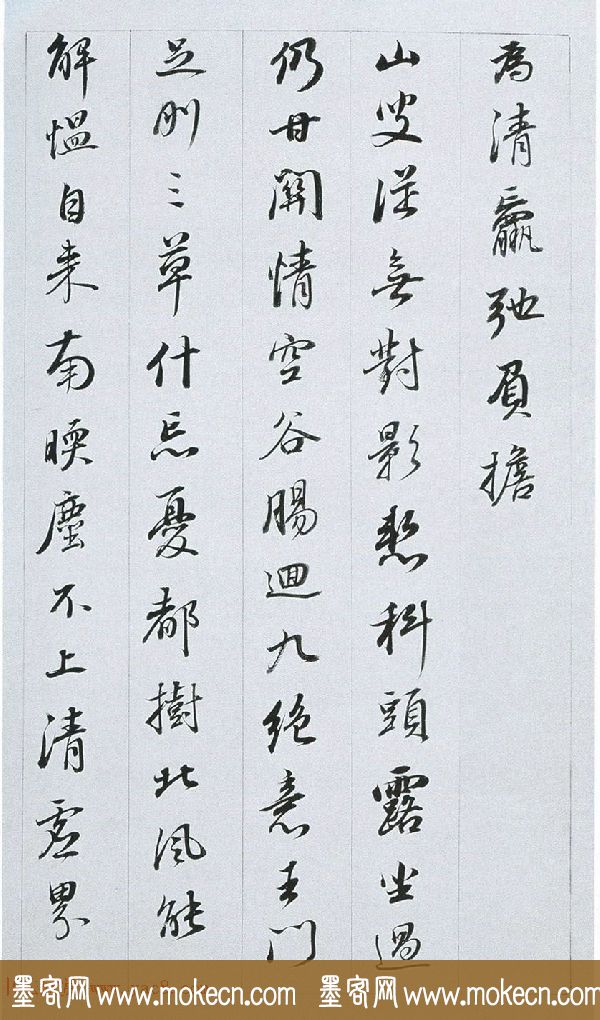 為清羸弛負擔
山叟從無對影愁科頭露坐過
仍甘關情空谷腸迴九絕意王門
足刖三草什忘憂都樹北風能
解愠自來南暎塵不上清虛界
墨客网 www.mokecn.com 墨客网 www.mokecn.com